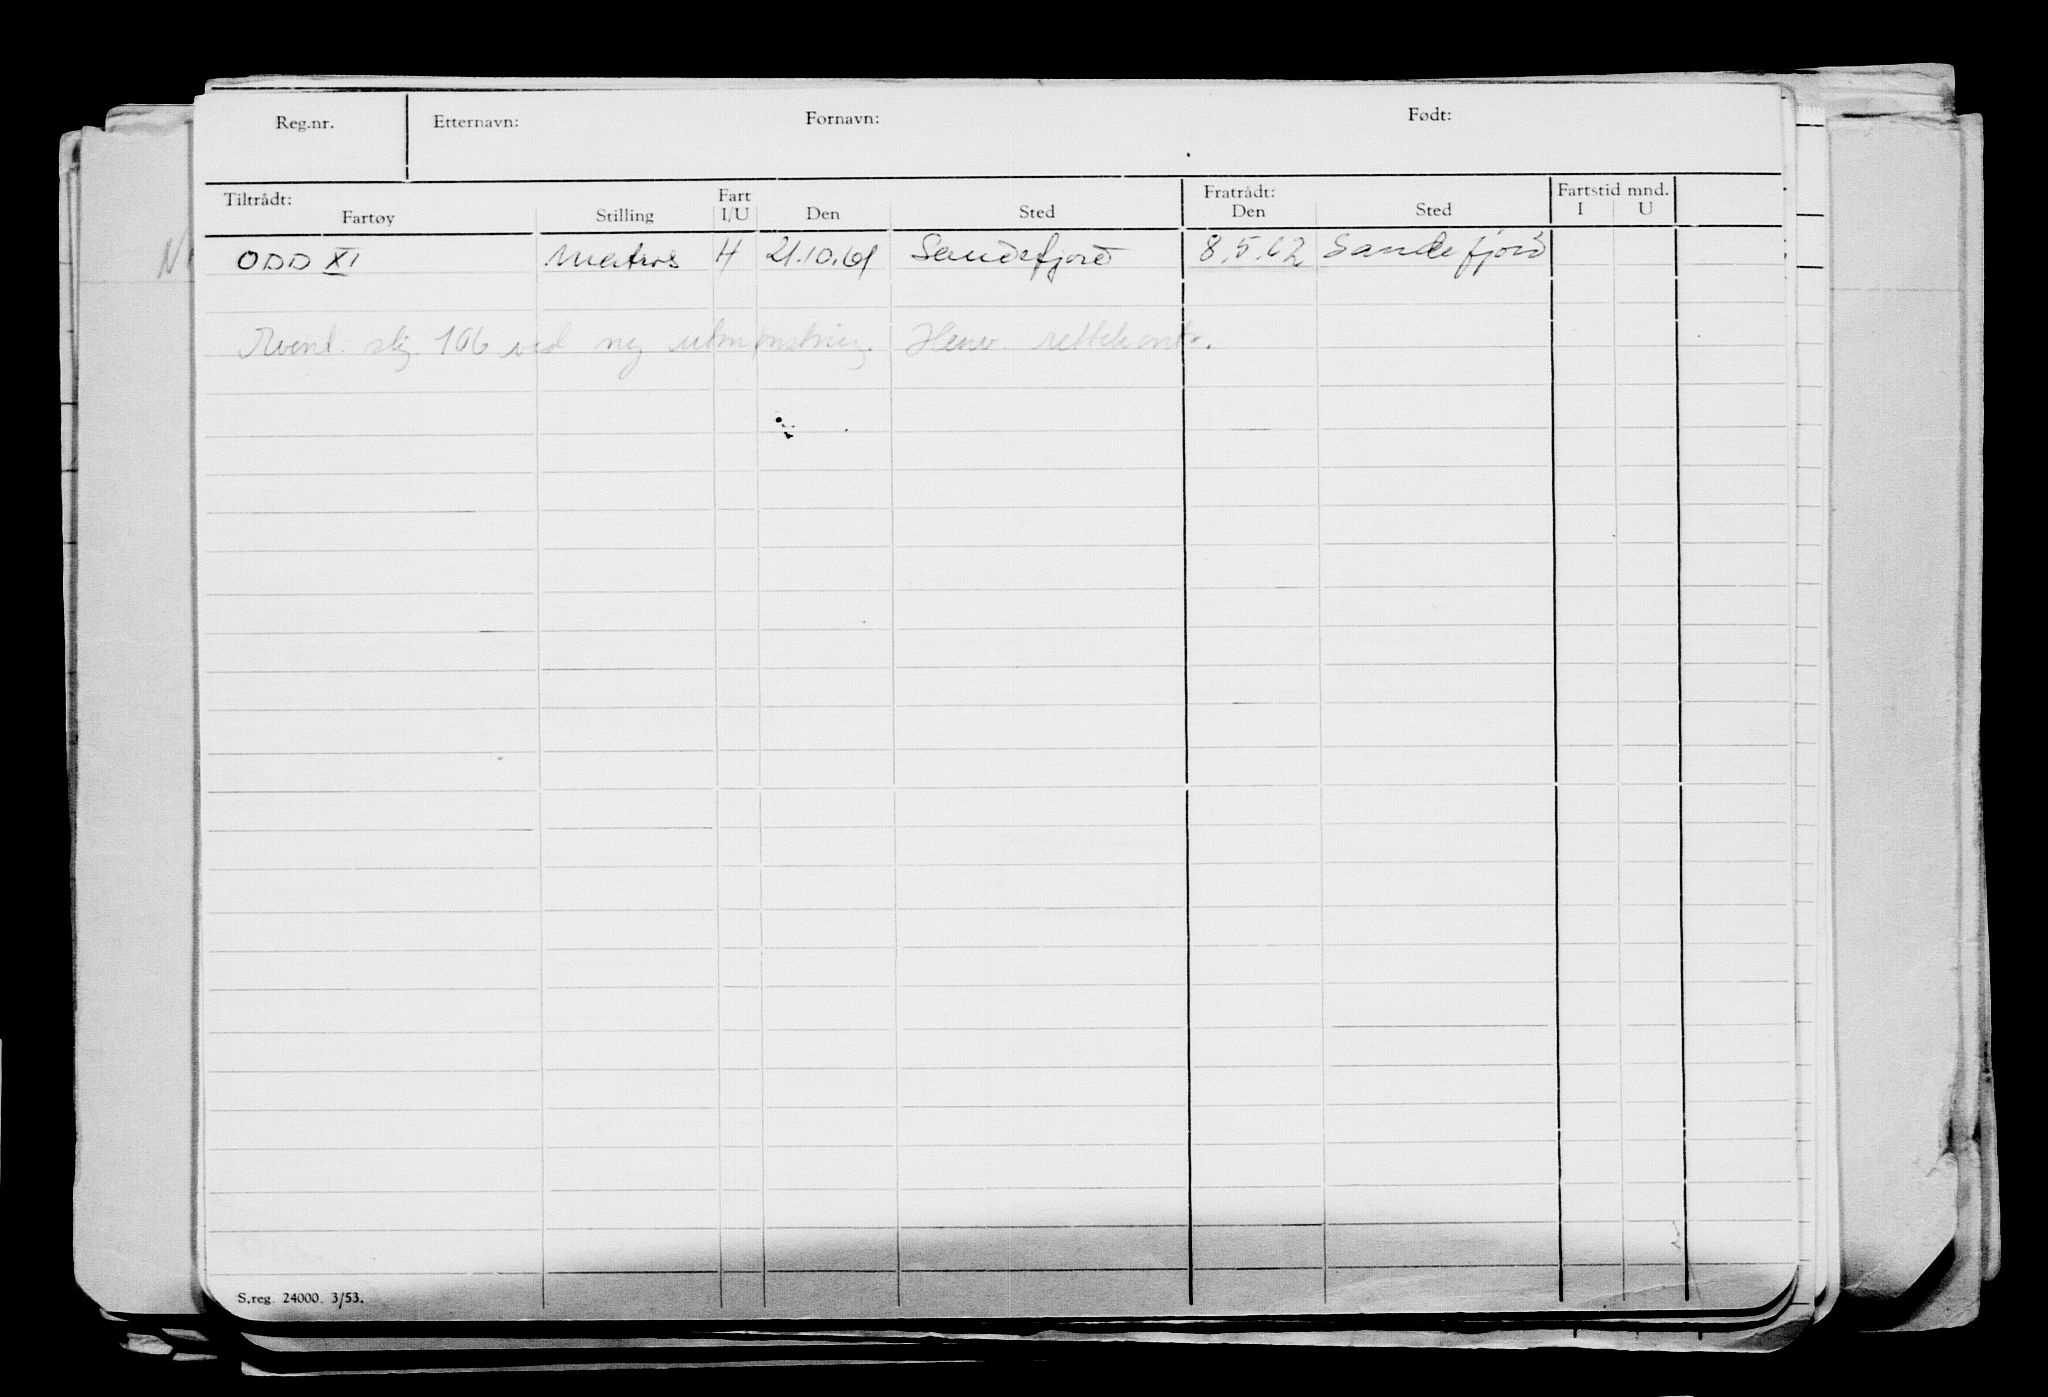 Reg.nr. Etternavn: Fornavn: Født:
Tiltrådt: Fratrådt: Fartstid mnd.
Fartøy Stilling Fart I/U Den Sted Den Sted I U
ODD XI Matros H 21.10.61 Sandefjord 8.5.62 Sandefjord
106 ved ny utmønstring. Henv. rettekontr.
S.reg. 24000. 3/53.